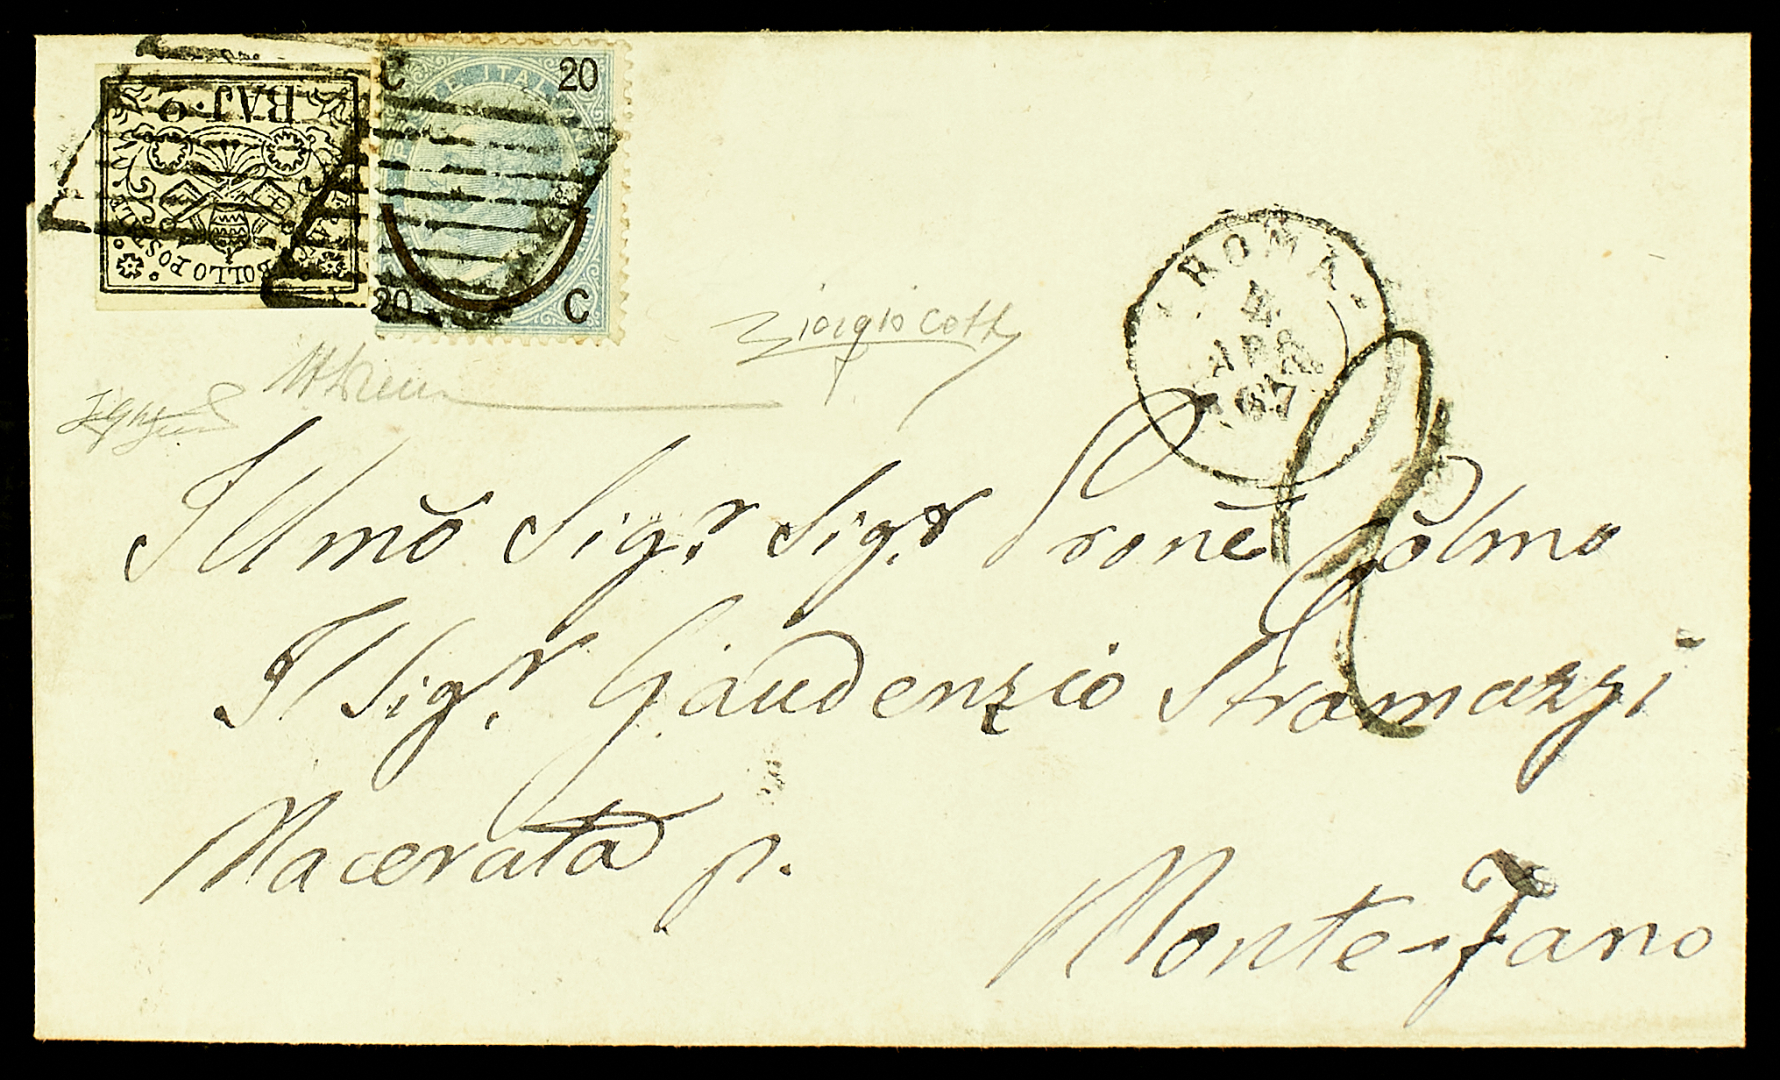 BAJ. 2
BOLLO POSTALE
C 20
20 C
ROMA
4
APR
67
Giorgio Colla
2
Illmõ Sig.r Sig.r Prone Colmo
Il Sig.r Gaudenzio Stramazzi
Macerata p.
Monte-Fano